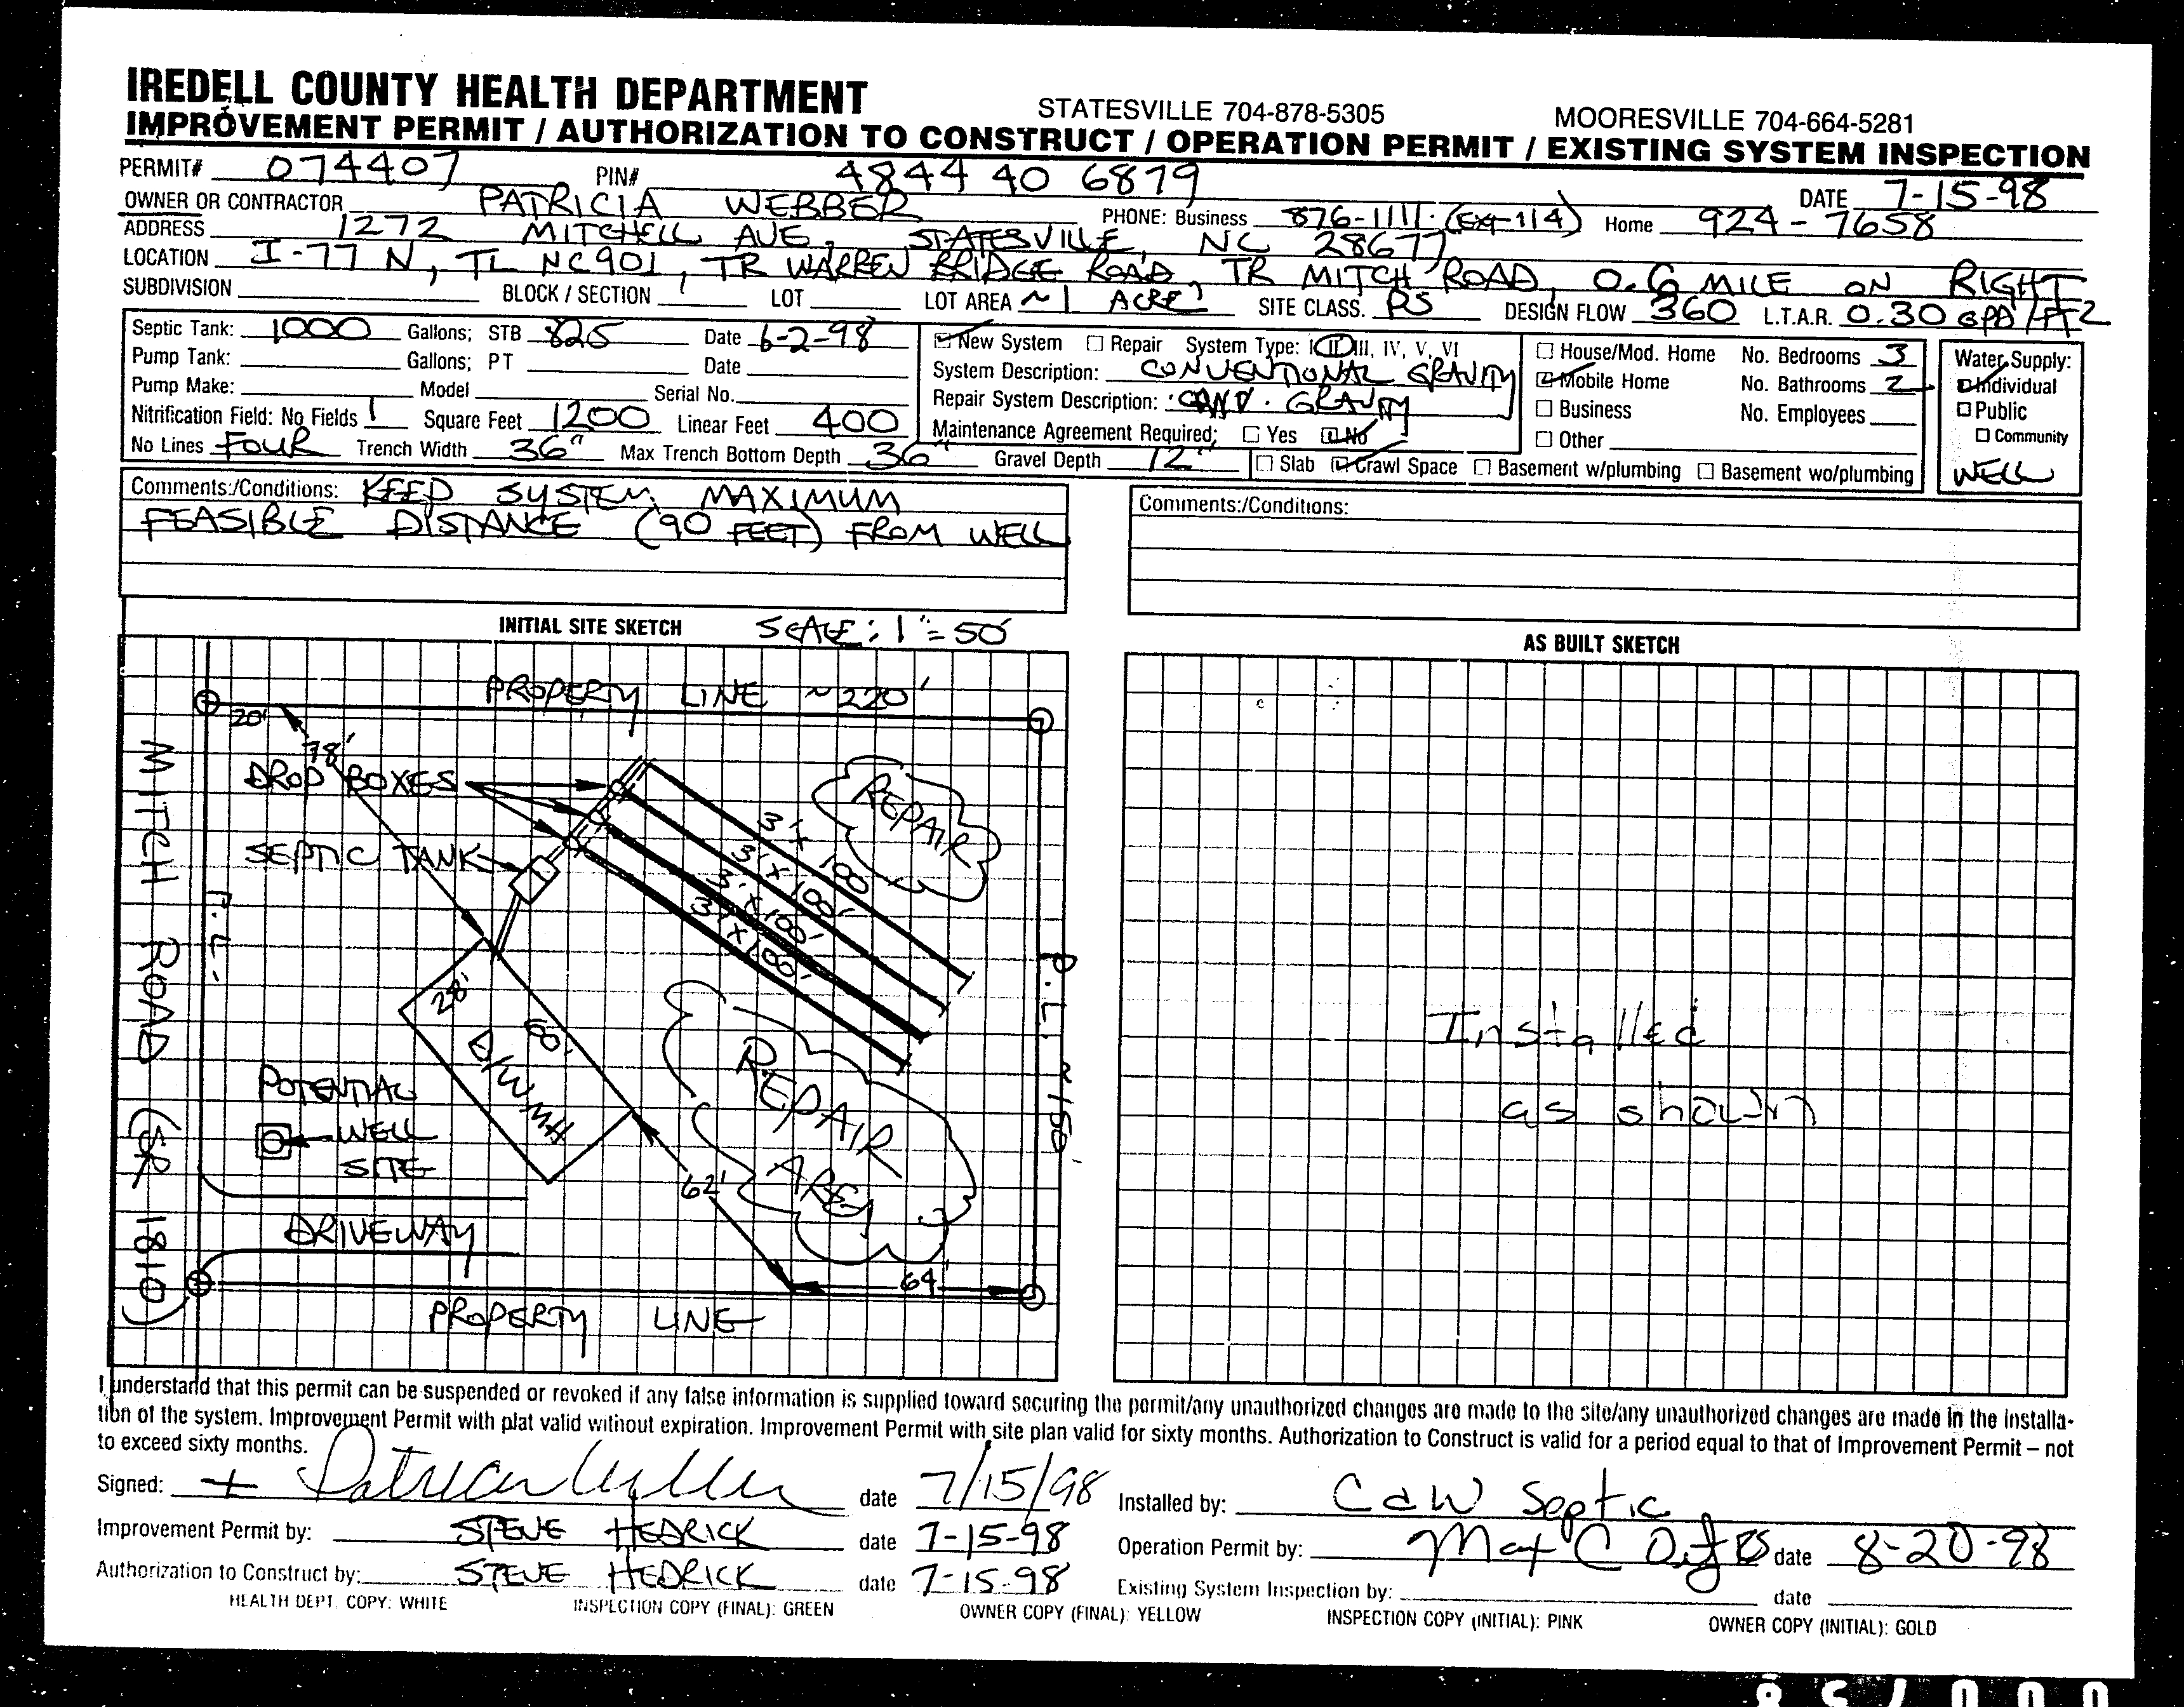 IREDELL COUNTY HEALTH DEPARTMENT STATESVILLE 704-878-5305 MOORESVILLE 704-664-5281
IMPROVEMENT PERMIT / AUTHORIZATION TO CONSTRUCT / OPERATION PERMIT / EXISTING SYSTEM INSPECTION
PERMIT# 074407 PIN# 4844 40 6879 DATE 7-15-98
OWNER OR CONTRACTOR PATRICIA WEBBER PHONE: Business 876-1111 (Ext 114) Home 924-7658
ADDRESS 1272 MITCHELL AVE, STATESVILLE, NC 28677
LOCATION I-77 N, TL NC901, TR WARREN BRIDGE ROAD, TR MITCH ROAD, 0.6 MILE ON RIGHT
SUBDIVISION BLOCK / SECTION LOT LOT AREA ~1 ACRE SITE CLASS. PS DESIGN FLOW 360 L.T.A.R. 0.30 GPD/FT2
Septic Tank: 1000 Gallons; STB 825 Date 6-2-98
Pump Tank: Gallons; PT Date
Pump Make: Model Serial No.
Nitrification Field: No Fields 1 Square Feet 1200 Linear Feet 400
No Lines FOUR Trench Width 36" Max Trench Bottom Depth 36" Gravel Depth 12"
New System Repair System Type: I, II, III, IV, V, VI
System Description: CONVENTIONAL GRAVITY
Repair System Description: CONV. GRAVITY
Maintenance Agreement Required: Yes No
Slab Crawl Space Basement w/plumbing Basement wo/plumbing
House/Mod. Home No. Bedrooms 3
Mobile Home No. Bathrooms 2
Business No. Employees
Other
Water Supply:
Individual
Public
Community
WELL
Comments:/Conditions: KEEP SYSTEM MAXIMUM
FEASIBLE DISTANCE (90 FEET) FROM WELL
Comments:/Conditions:
INITIAL SITE SKETCH SCALE: 1"=50'
PROPERTY LINE ~220'
20'
78'
DROP BOXES
SEPTIC TANK
REPAIR
3' x 100'
3' x 100'
3' x 100'
3' x 100'
MITCH ROAD (SR 1810)
P.L.
P.L. ~150'
28'
60'
D/W MH
POTENTIAL
WELL
SITE
REPAIR
AREA
62'
DRIVEWAY
64'
PROPERTY LINE
AS BUILT SKETCH
Installed
as shown
I understand that this permit can be suspended or revoked if any false information is supplied toward securing the permit/any unauthorized changes are made to the site/any unauthorized changes are made in the installa-
tion of the system. Improvement Permit with plat valid without expiration. Improvement Permit with site plan valid for sixty months. Authorization to Construct is valid for a period equal to that of Improvement Permit – not
to exceed sixty months.
Signed: date 7/15/98 Installed by: C&W Septic
Improvement Permit by: STEVE HEDRICK date 7-15-98 Operation Permit by: date 8-20-98
Authorization to Construct by: STEVE HEDRICK date 7-15-98 Existing System Inspection by: date
HEALTH DEPT. COPY: WHITE INSPECTION COPY (FINAL): GREEN OWNER COPY (FINAL): YELLOW INSPECTION COPY (INITIAL): PINK OWNER COPY (INITIAL): GOLD